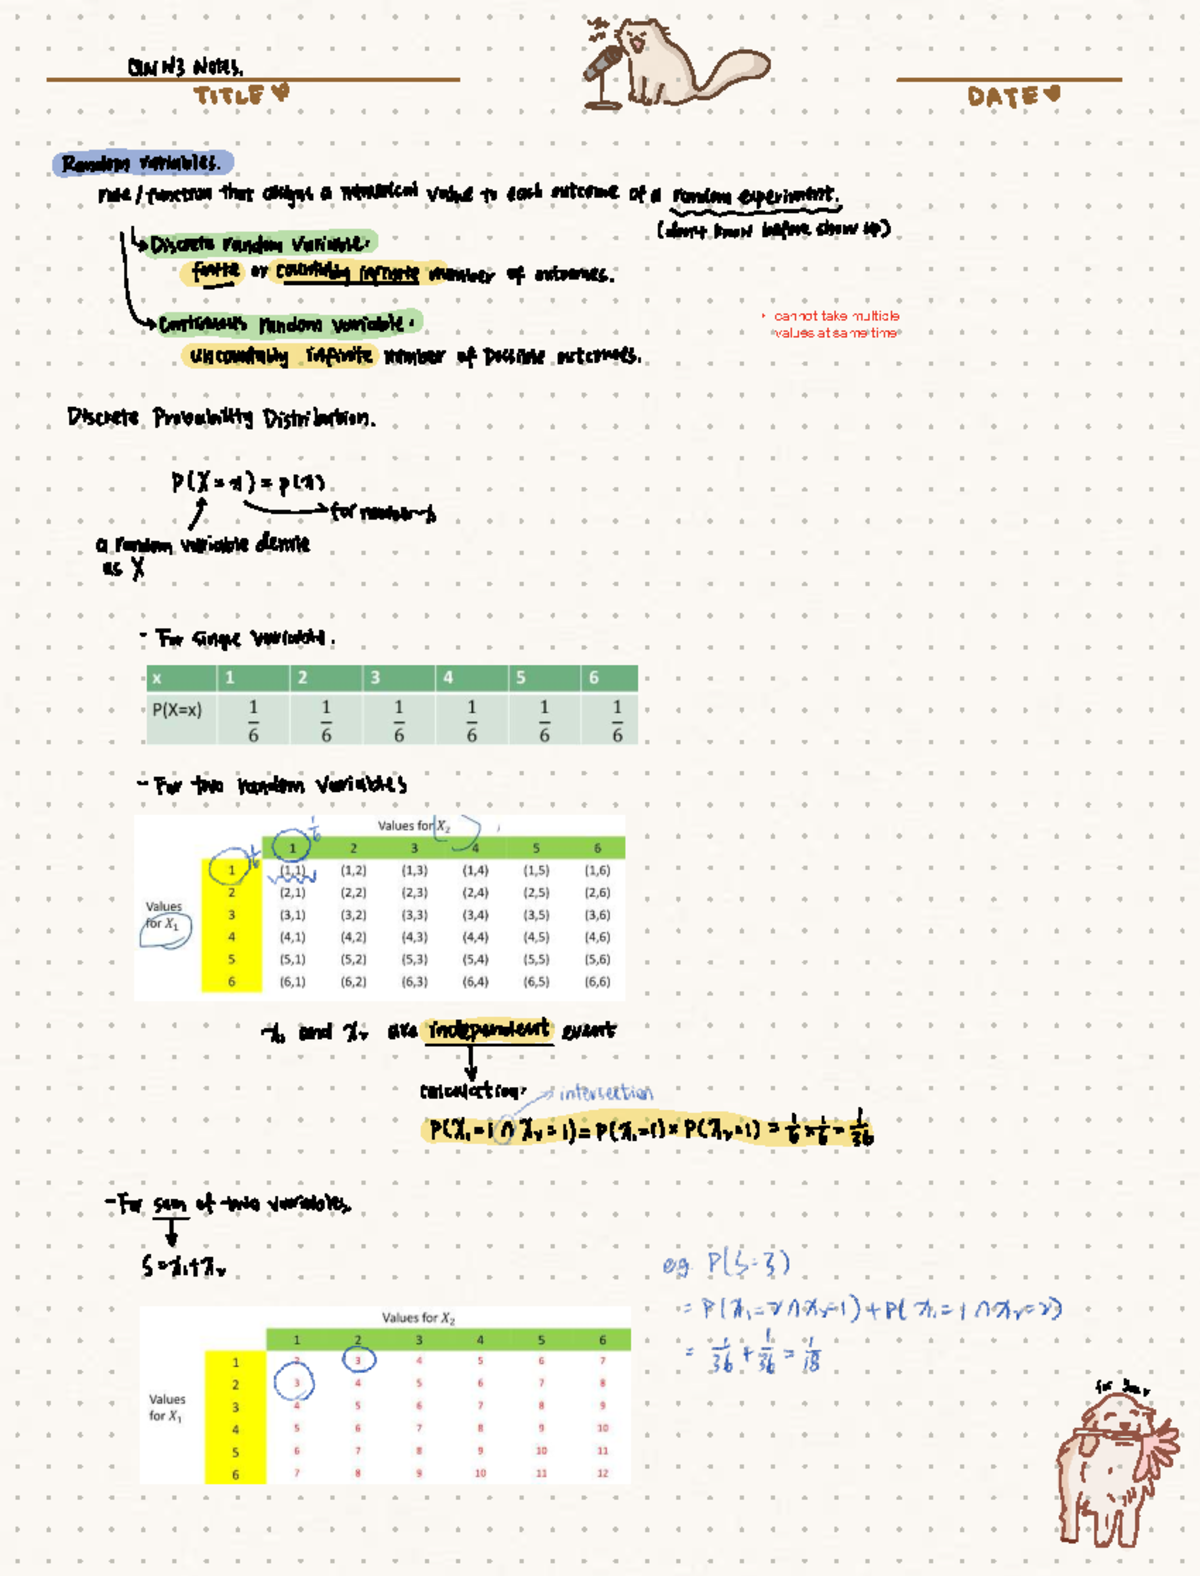 W3 Notes.
TITLE
DATE
Random Variables.
rule / function that assigns a numerical value to each outcome of a random experiment.
(don't know before show up)
Discrete random Variable.
finite or countably infinite number of outcomes.
Continuous random variable.
uncountably infinite number of possible outcomes.
• cannot take multiple
values at same time
Discrete Probability Distribution.
P(X=x) = p(x)
for numbers
a random variable denote
as X
- For single variable.
x 1 2 3 4 5 6
P(X=x) 1/6 1/6 1/6 1/6 1/6 1/6
- For two random variables
Values for X₂
1/6
1 2 3 4 5 6
1/6
1 (1,1) (1,2) (1,3) (1,4) (1,5) (1,6)
2 (2,1) (2,2) (2,3) (2,4) (2,5) (2,6)
Values
for X₁
3 (3,1) (3,2) (3,3) (3,4) (3,5) (3,6)
4 (4,1) (4,2) (4,3) (4,4) (4,5) (4,6)
5 (5,1) (5,2) (5,3) (5,4) (5,5) (5,6)
6 (6,1) (6,2) (6,3) (6,4) (6,5) (6,6)
x₁ and x₂ are independent event
calculation:
intersection
P(x₁=1 ∩ x₂=1) = P(x₁=1) × P(x₂=1) = 1/6 × 1/6 = 1/36
- For sum of two variables.
S = x₁+x₂
eg P(S=3)
= P(x₁=2 ∩ x₂=1) + P(x₁=1 ∩ x₂=2)
= 1/36 + 1/36 = 1/18
Values for X₂
1 2 3 4 5 6
1 2 3 4 5 6 7
2 3 4 5 6 7 8
Values
for X₁
3 4 5 6 7 8 9
4 5 6 7 8 9 10
5 6 7 8 9 10 11
6 7 8 9 10 11 12
for you